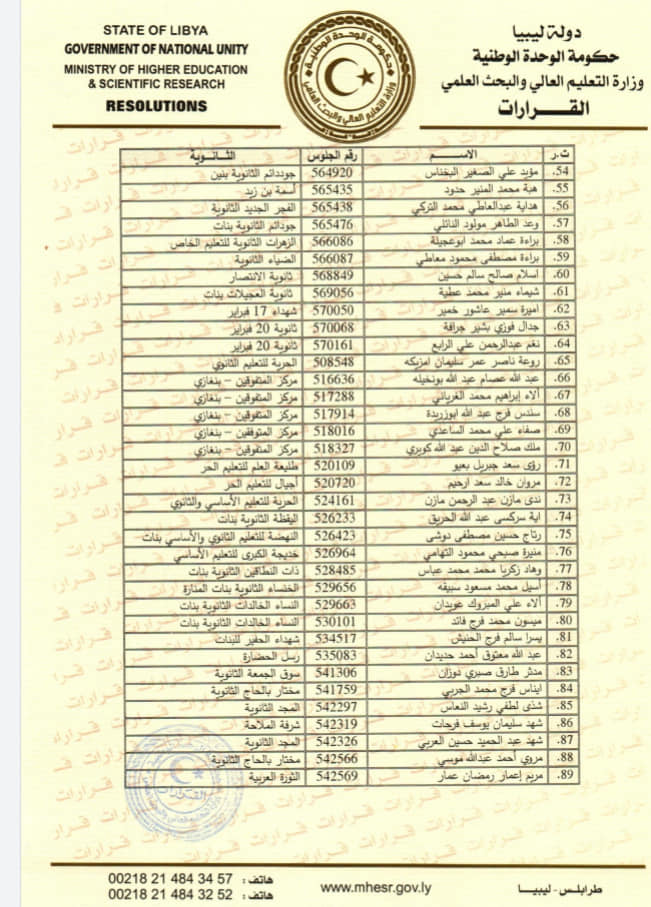 STATE OF LIBYA
GOVERNMENT OF NATIONAL UNITY
MINISTRY OF HIGHER EDUCATION
& SCIENTIFIC RESEARCH
RESOLUTIONS
دولة ليبيا
حكومة الوحدة الوطنية
وزارة التعليم العالي والبحث العلمي
القـــرارات
ت.ر الاســـم رقم الجلوس الثـانـويـة
54. مؤيد علي الصغير البخناس 564920 جوددائم الثانوية بنين
55. هبة محمد المنير حدود 565435 أسمة بن زيد
56. هداية عبدالعاطي محمد التركي 565438 الفجر الجديد الثانوية
57. وعد الطاهر مولود النائلي 565476 جودائم الثانوية بنات
58. براءة عماد محمد ابوعجيلة 566086 الزهرات الثانوية للتعليم الخاص
59. براءة مصطفى محمود معاطي 566087 الضياء الثانوية
60. اسلام صالح سالم حسين 568849 ثانوية الانتصار
61. شيماء منير محمد عطية 569056 ثانوية العجيلات بنات
62. اميرة سمير عاشور خمير 570050 شهداء 17 فبراير
63. جدال فوزي بشير جرافة 570068 ثانوية 20 فبراير
64. نغم عبدالرحمن علي الرابع 570161 ثانوية 20 فبراير
65. روعة ناصر عمر سليمان امزيكه 508548 الحرية للتعليم الثانوي
66. عبد الله عصام عبد الله بونخيله 516636 مركز المتفوقين – بنغازي
67. ألاء إبراهيم محمد الغرياني 517288 مركز المتفوقين – بنغازي
68. سندس فرج عبد الله ابوزريدة 517914 مركز المتفوقين – بنغازي
69. صفاء علي محمد الساعدي 518016 مركز المتوفقين – بنغازي
70. ملك صلاح الدين عبد الله كويري 518327 مركز المتفوقين – بنغازي
71. رؤى سعد جبريل بعيو 520109 طليعة العلم للتعليم الحر
72. مروان خالد سعد ارحيم 520720 أجيال للتعليم الحر
73. ندى مازن عبد الرحمن مازن 524161 الحرية للتعليم الأساسي والثانوي
74. اية سركسى عبد الله الحريق 526233 اليقظة الثانوية بنات
75. رتاج حسين مصطفى دوشى 526423 النهضة للتعليم الثانوي والأساسي بنات
76. منيرة صبحي محمود التهامي 526964 خديجة الكبرى للتعليم الأساسي
77. وهاد زكريا محمد محمد عباس 528485 ذات النطاقين الثانوية بنات
78. أسيل محمد مسعود سبيقه 529656 الخنساء الثانوية بنات المنارة
79. ألاء علي المبروك عويدان 529663 النساء الخالدات الثانوية بنات
80. ميسون محمد فرج فائد 530101 النساء الخالدات الثانوية بنات
81. يسرا سالم فرج الحنيش 534517 شهداء الحفير للبنات
82. عبد الله معتوق أحمد حديدان 535083 رسل الحضارة
83. مدثر طارق صبري نوزان 541306 سوق الجمعة الثانوية
84. ايناس فرج محمد الجربي 541759 مختار بالحاج الثانوية
85. شذى لطفي رشيد النعاس 542297 المجد الثانوية
86. شهد سليمان يوسف فرحات 542319 شرفة الملاحة
87. شهد عبد الحميد حسين العربي 542326 المجد الثانوية
88. مروي أحمد عبدالله موسي 542566 مختار بالحاج الثانوية
89. مريم إعمار رمضان عمار 542569 الثورة العربية
هاتف : 00218 21 484 34 57
هاتف : 00218 21 484 32 52
www.mhesr.gov.ly
طرابلس - ليبيا